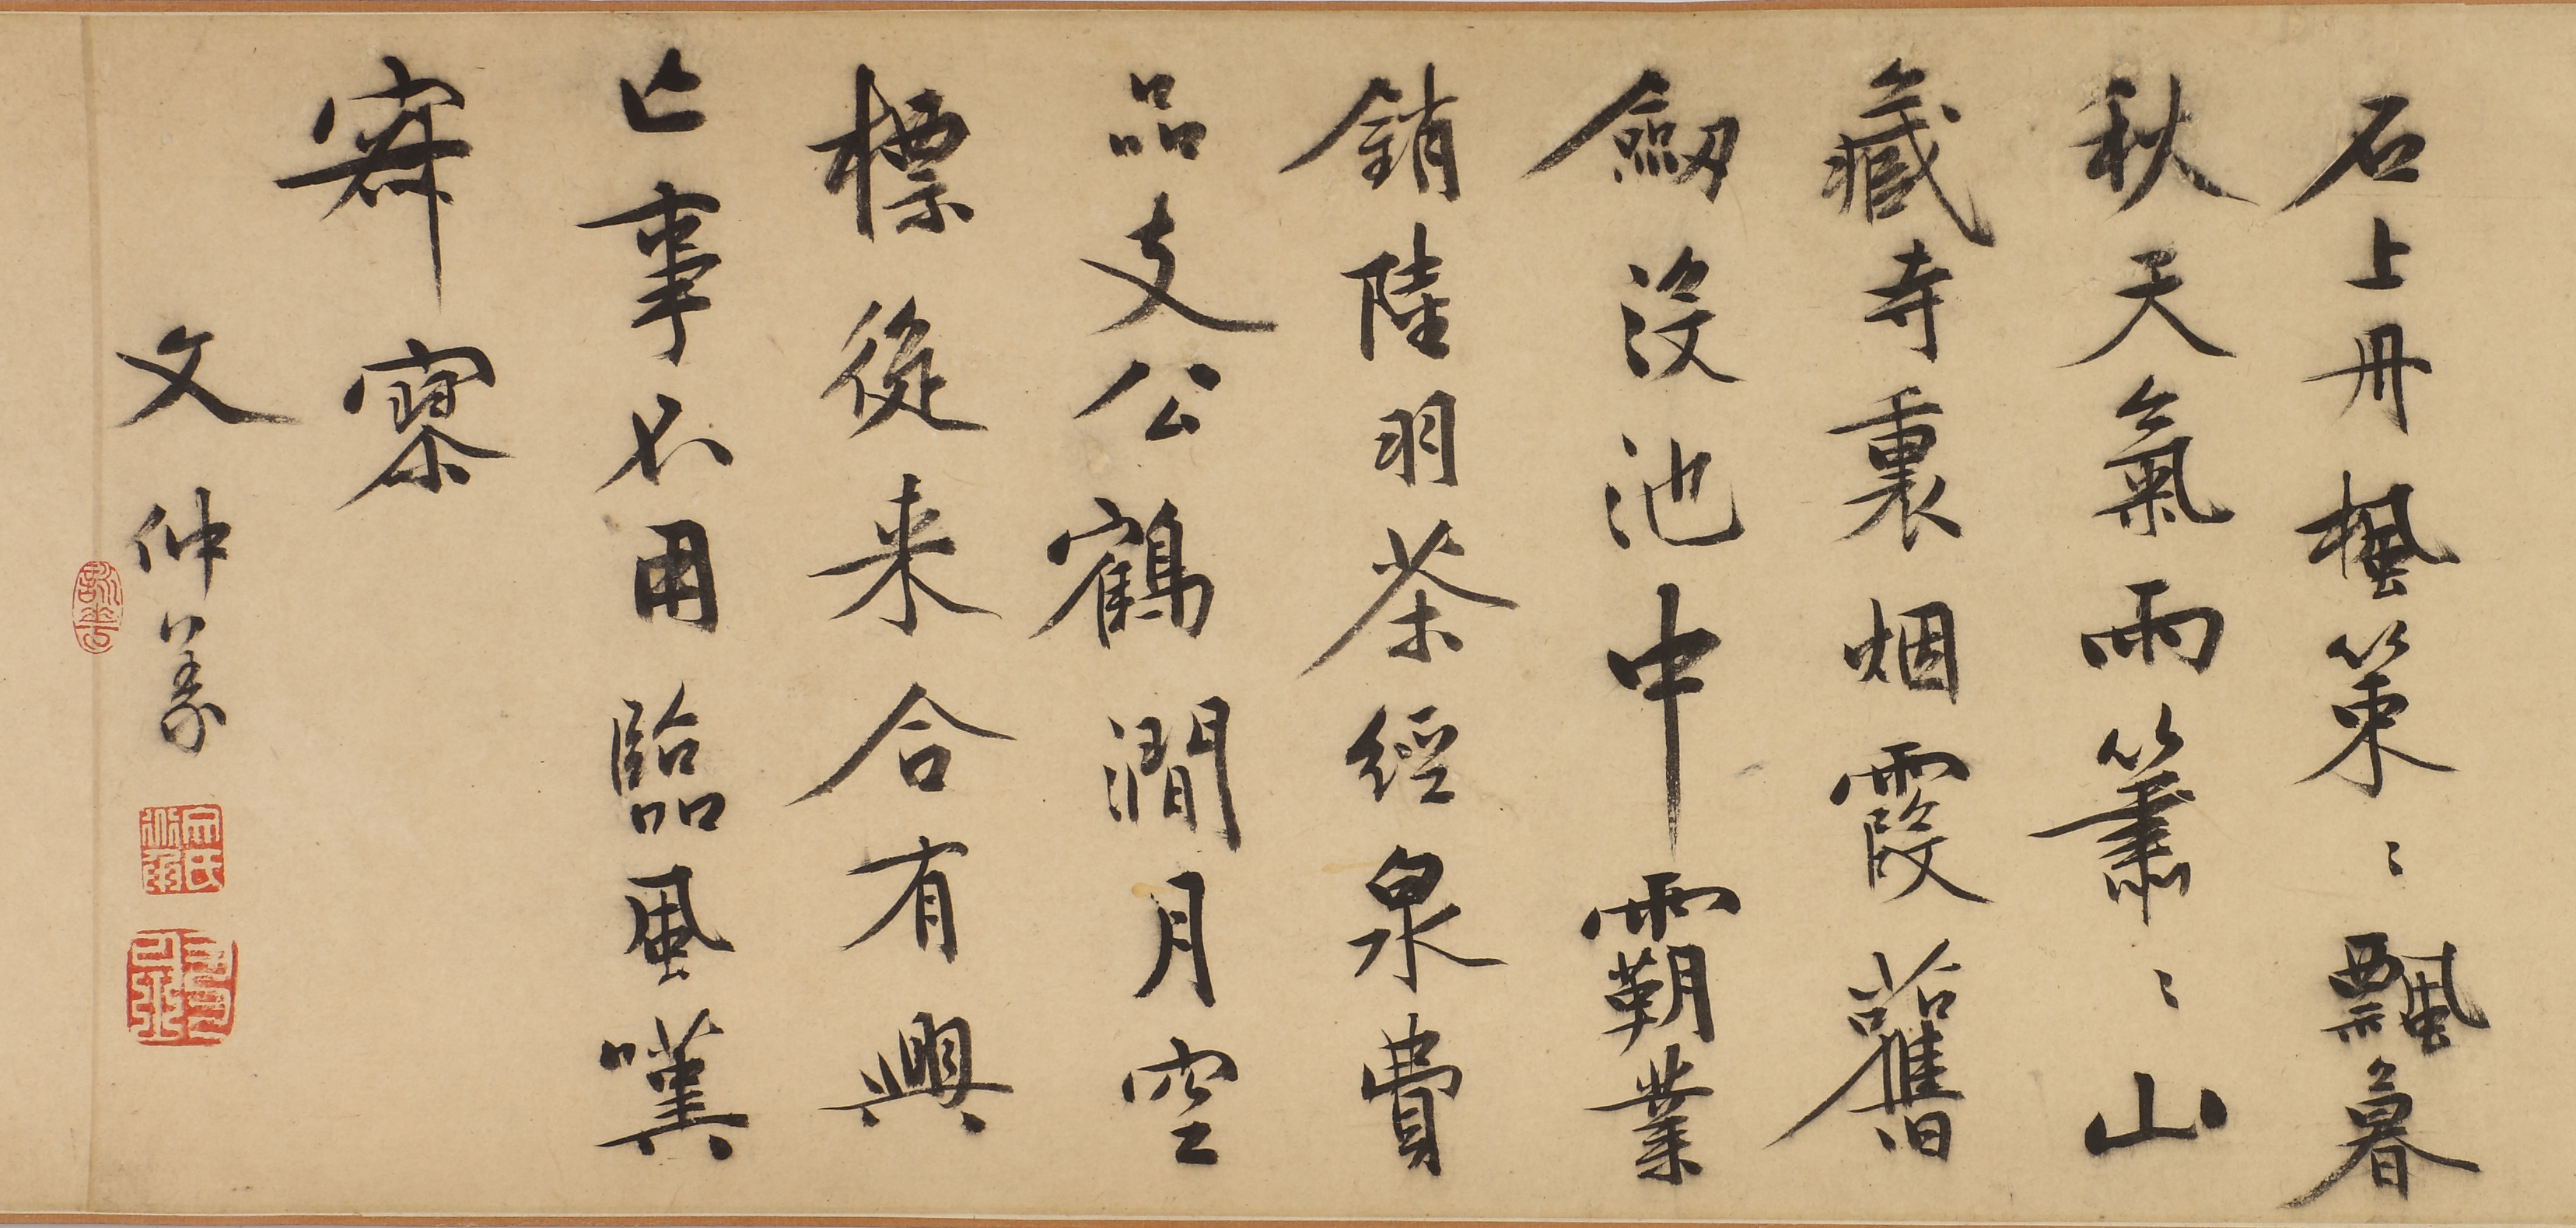 石上丹楓策〻飄暮
秋天氣雨簫〻山
藏寺裏烟霞舊
劔没池中霸業
銷陸羽茶經泉費
品支公鶴澗月空
標從来合有興
亡事不用臨風嘆
寂寥
文仲義